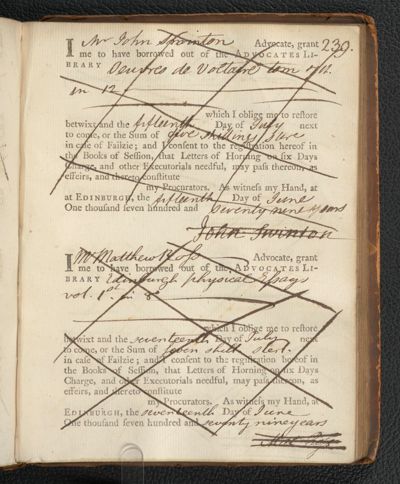 239.
I Mr John Swinton Advocate, grant
me to have borrowed out of the ADVOCATES LI-
BRARY Oeuvres de Voltaire tom
in 12
which I oblige me to restore
betwixt and the fifteenth Day of July next
to come, or the Sum of five shillings Sterl
in case of Failzie; and I consent to the registration hereof in
the Books of Session, that Letters of Horning on six Days
Charge, and other Executorials needful, may pass thereon, as
effeirs, and thereto constitute
my Procurators. As witness my Hand, at
at EDINBURGH, the fifteenth Day of June
One thousand seven hundred and seventy nine years
John Swinton
I Mr Matthew Ross Advocate, grant
me to have borrowed out of the ADVOCATES LI-
BRARY Edinburgh physical Essays
vol. 1st in 8
which I oblige me to restore
betwixt and the seventeenth Day of July next
to come, or the Sum of seven shill Sterl.
in case of Failzie; and I consent to the registration hereof in
the Books of Session, that Letters of Horning on six Days
Charge, and other Executorials needful, may pass thereon, as
effeirs, and thereto constitute
my Procurators. As witness my Hand, at
EDINBURGH, the seventeenth Day of June
One thousand seven hundred and seventy nine years